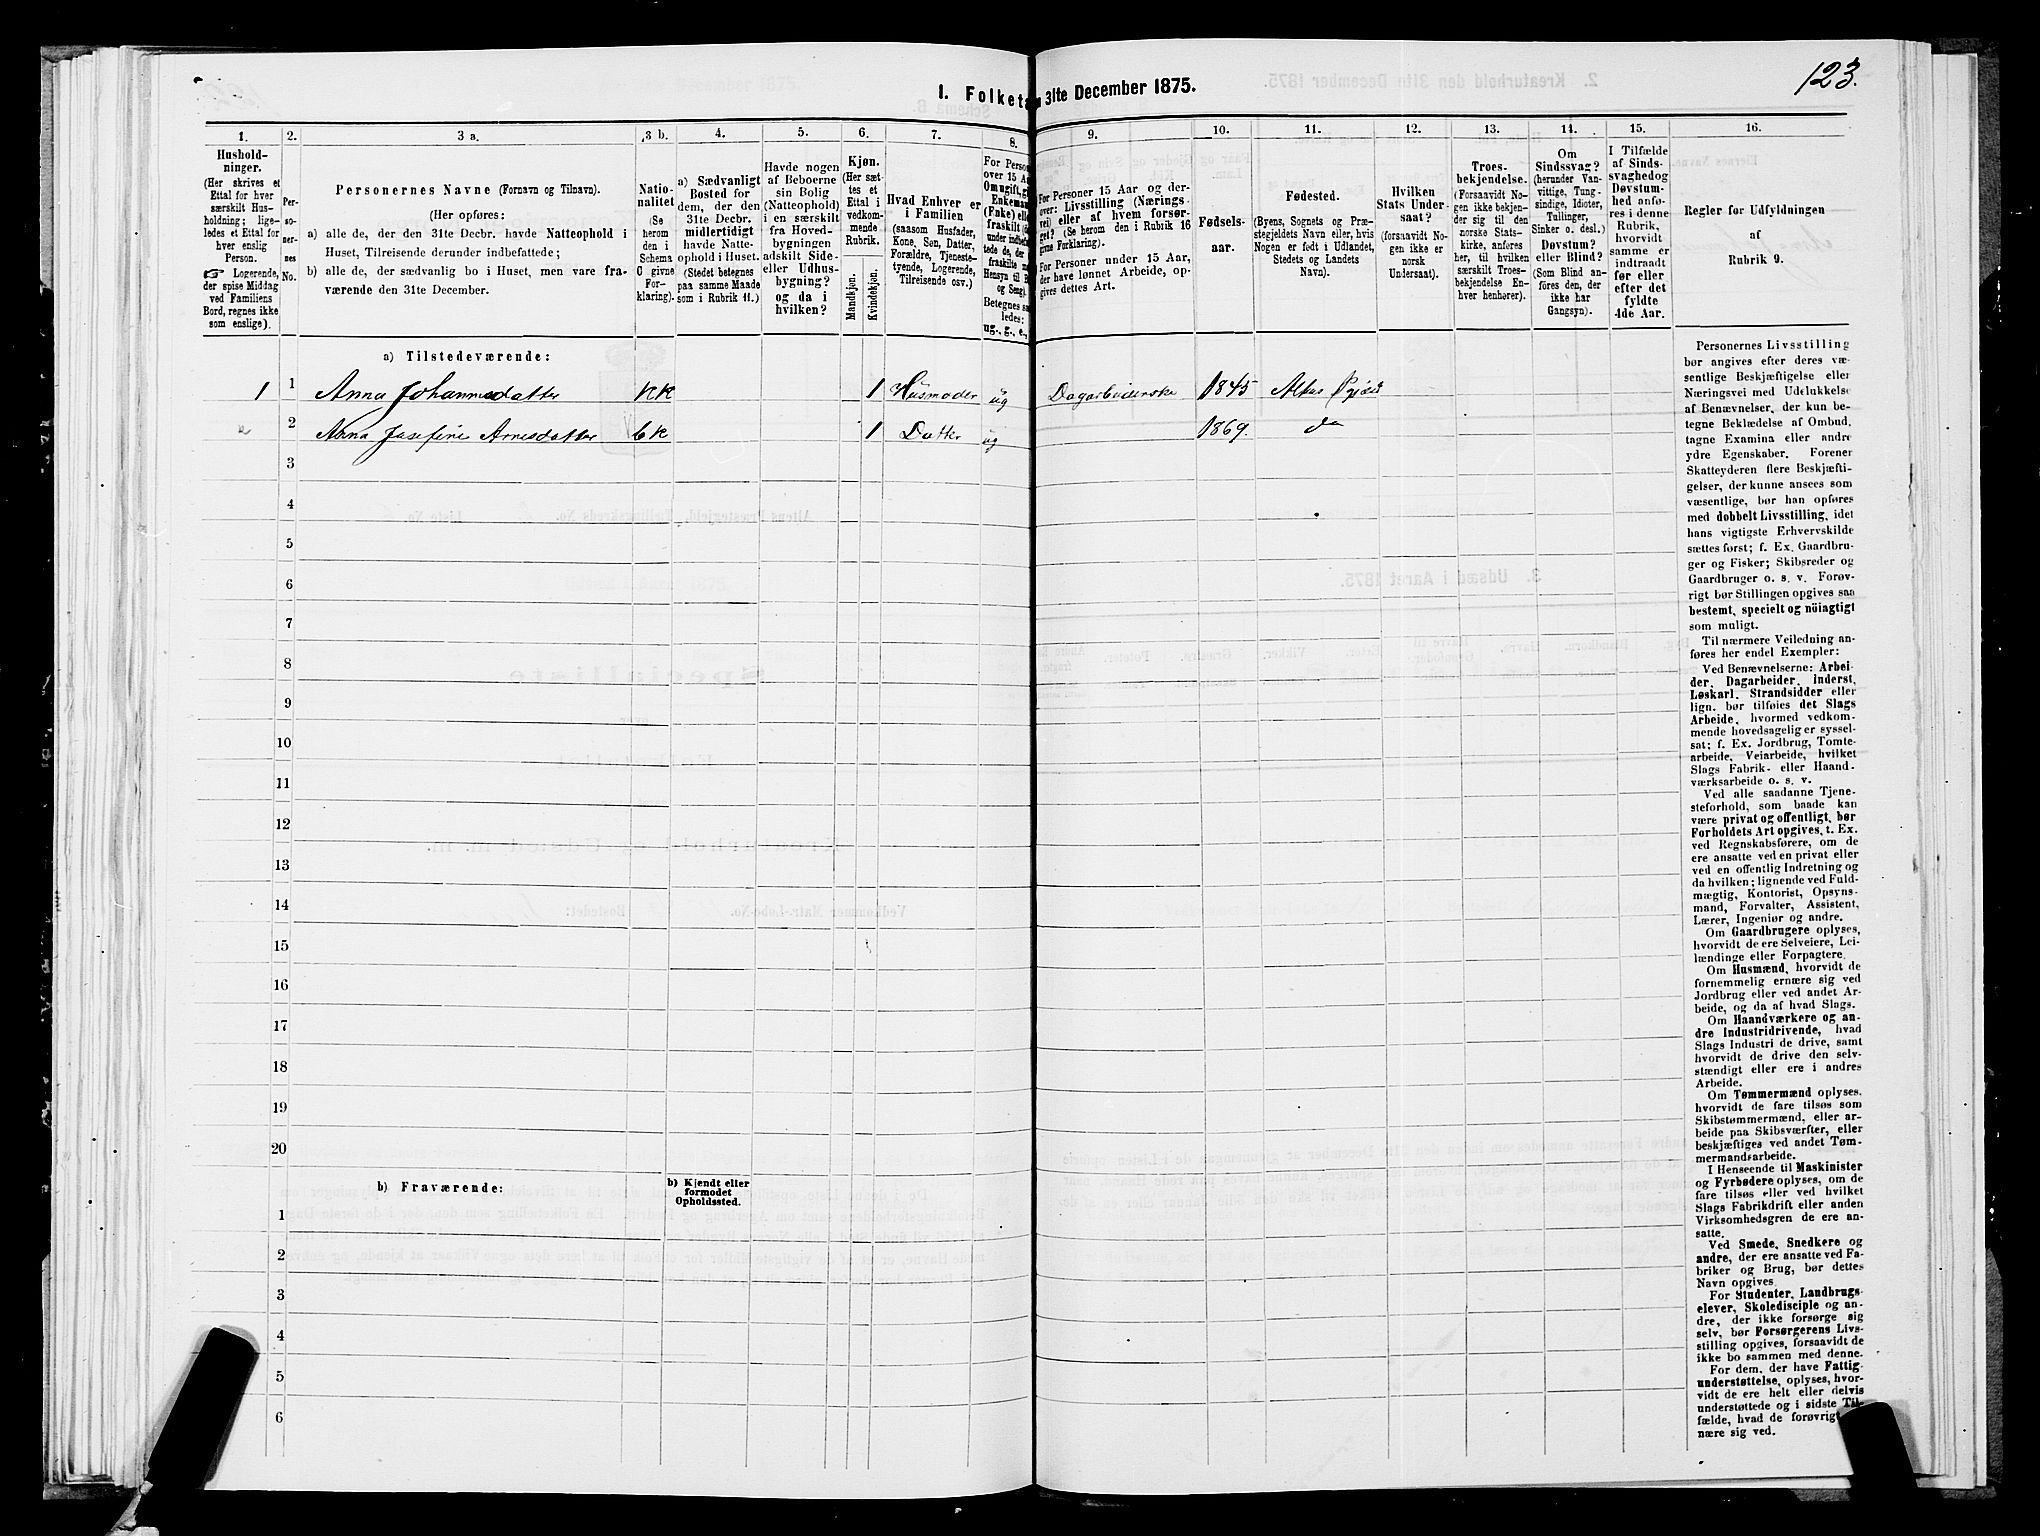 123.
1. Folketa
31te December 1875.
1.
2.
3 a.
3 b.
4.
5.
6.
7.
8.
9.
10.
11.
12.
13.
14.
15.
16.
Hushold-
ninger.
(Her skrives et
Ettal for hver
særskilt Hus-
holdning; lige-
ledes et Ettal for
hver enslig
Person.
☞ Logerende,
der spise Middag
ved Familiens
Bord, regnes ikke
som enslige).
Per-
so-
ner-
nes
No.
Personernes Navne (Fornavn og Tilnavn).
(Her opføres:
a) alle de, der den 31te Decbr. havde Natteophold i
Huset, Tilreisende derunder indbefattede;
b) alle de, der sædvanlig bo i Huset, men vare fra-
værende den 31te December.
Natio-
nalitet
(Se
herom
den i
Schema
C givne
For-
klaring).
a) Sædvanligt
Bosted for
dem, der den
31te Decbr.
midlertidigt
havde Natte-
ophold i Huset.
(Stedet betegnes
paa samme Maade
som i Rubrik 11.)
Havde nogen
af Beboerne
sin Bolig
(Natteophold)
i en særskilt
fra Hoved-
bygningen
adskilt Side-
eller Udhus-
bygning?
og da i
hvilken?
Kjøn.
(Her sæt-
tes et
Ettal i
vedkom-
mende
Rubrik.
Mandkjøn.
Kvindekjøn.
Hvad Enhver er
i Familien
(saasom Husfader,
Kone, Søn, Datter,
Forældre, Tjeneste-
tyende, Logerende,
Tilreisende osv.)
For Person
over 15 Aar
Omugift, gi
Enkeman
(Enke) elle
fraskilt (
under indbefat
tede de, der
fraskilte m
Hensyn til B
og Seng).
Betegnes sa
ledes:
ug., g., e.,
For Personer 15 Aar og der-
over: Livsstilling (Nærings-
vei) eller af hvem forsør-
get? (Se herom den i Rubrik 16
givne Forklaring).
For Personer under 15 Aar,
der have lønnet Arbeide, op-
gives dettes Art.
Fødsels-
aar.
Fødested.
(Byens, Sognets og Præ-
stegjeldets Navn eller, hvis
Nogen er født i Udlandet,
Stedets og Landets
Navn).
Hvilken
Stats Under-
saat?
(forsaavidt No-
gen ikke er
norsk
Undersaat).
Troes-
bekjendelse.
(Forsaavidt No-
gen ikke bekjen-
der sig til den
norske Stats-
kirke, anføres
her, til hvilken
særskilt Troes-
bekjendelse En-
hver henhører).
Om
Sindssvag?
(herunder Van-
vittige, Tung-
sindige, Idioter,
Tullinger,
Sinker o. desl.)
Døvstum?
eller Blind?
(Som Blind an-
føres den, der
ikke har
Gangsyn).
I Tilfælde
af Sinds-
svaghed og
Døvstum-
hed anfø-
res i denne
Rubrik,
hvorvidt
samme er
indtraadt
før eller
efter det
fyldte
4de Aar.
Regler før Udfyldningen
af
Rubrik 9.
a) Tilstedeværende:
1 1 Anna Johannesdatter KK 1 Husmoder ug Dagarbeiderske 1845
2 Anna Josefine Arnesdatter bK 1 Datter ug 1869. do
3
4
5
6
7
8
9
10
11
12
13
14
15
16
17
18
19
20
b) Fraværende:
b) Kjendt eller
formodet
Opholdssted.
1
2
3
4
5
6
Personernes Livsstilling
bør angives efter deres væ-
sentlige Beskjæftigelse eller
Næringsvei med Udelukkelse
af Benævnelser, der kun be-
tegne Beklædelse af Ombud,
tagne Examina eller andre
ydre Egenskaber. Forener
Skatteyderen flere Beskjæfti-
gelser, der kunne ansees som
væsentlige, bør han opføres
med dobbelt Livsstilling, idet
hans vigtigste Erhvervskilde
sættes først; f. Ex. Gaardbru-
ger og Fisker; Skibsreder og
Gaardbruger o. s. v. Forøv-
rigt bør Stillingen opgives saa
bestemt, specielt og nöiagtigt
som muligt.
Til nærmere Veiledning an-
føres her endel Exempler:
Ved Benævnelserne: Arbei-
der, Dagarbeider, inderst,
Løskarl, Strandsidder eller
lign. bør tilføies det Slags
Arbeide, hvormed vedkom-
mende hovedsagelig er syssel-
sat; f. Ex. Jordbrug, Tomte-
arbeide, Veiarbeide, hvilket
Slags Fabrik- eller Haand-
værksarbeide o. s. v.
Ved alle saadanne Tjene-
steforhold, som baade kan
være privat og offentligt, bør
Forholdets Art opgives, t. Ex.
ved Regnskabsførere, om de
ere ansatte ved en privat eller
ved en offentlig Indretning og
da hvilken; lignende ved Fuld-
mægtig, Kontorist, Opsyns-
mand, Forvalter, Assistent,
Lærer, Ingeniør og andre.
Om Gaardbrugere oplyses,
hvorvidt de ere Selveiere, Lei-
lændinge eller Forpagtere.
Om Husmænd, hvorvidt de
fornemmelig ernære sig ved
Jordbrug eller ved andet Ar-
beide, og da af hvad Slags.
Om Haandværkere og an-
dre Industridrivende, hvad
Slags Industri de drive, samt
hvorvidt de drive den selv-
stændigt eller ere i andres
Arbeide.
Om Tømmermænd oplyses,
hvorvidt de fare tilsøs som
Skibstømmermænd, eller ar-
beide paa Skibsværfter, eller
beskjæftiges ved andet Tøm-
mermandsarbeide.
I Henseende til Maskinister
og Fyrbødere oplyses, om de
fare tilsøs eller ved hvilket
Slags Fabrikdrift eller anden
Virksomhedsgren de ere an-
satte.
Ved Smede, Snedkere og
andre, der ere ansatte ved Fa-
briker og Brug, bør dettes
Navn opgives.
For Studenter, Landbrugs-
elever, Skoledisciple og an-
dre, der ikke forsørge sig
selv, bør Forsørgerens Livs-
stilling opgives, forsaavidt de
ikke bo sammen med denne.
For dem, der have Fattig-
understøttelse, oplyses, hvor-
vidt de ere helt eller delvis
understøttede og i sidste Til-
fælde, hvad de forøvrigt
nære sig ved.